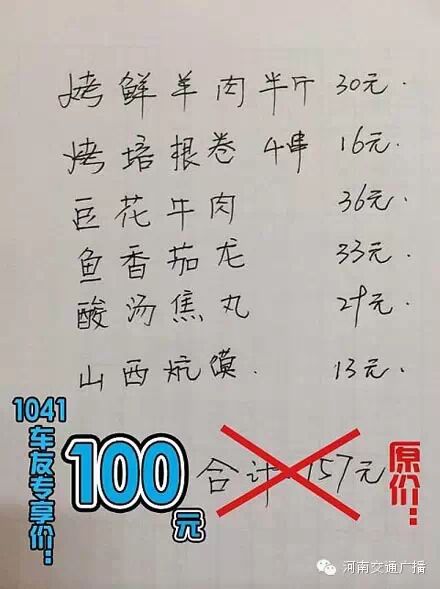 烤鲜羊肉半斤 30元.
烤培根卷 4串 16元.
巨花牛肉 36元.
鱼香茄龙 33元.
酸汤焦丸 29元.
山西炕馍. 13元.
1041车友专享价!
100元
合计 157元
原价:
河南交通广播